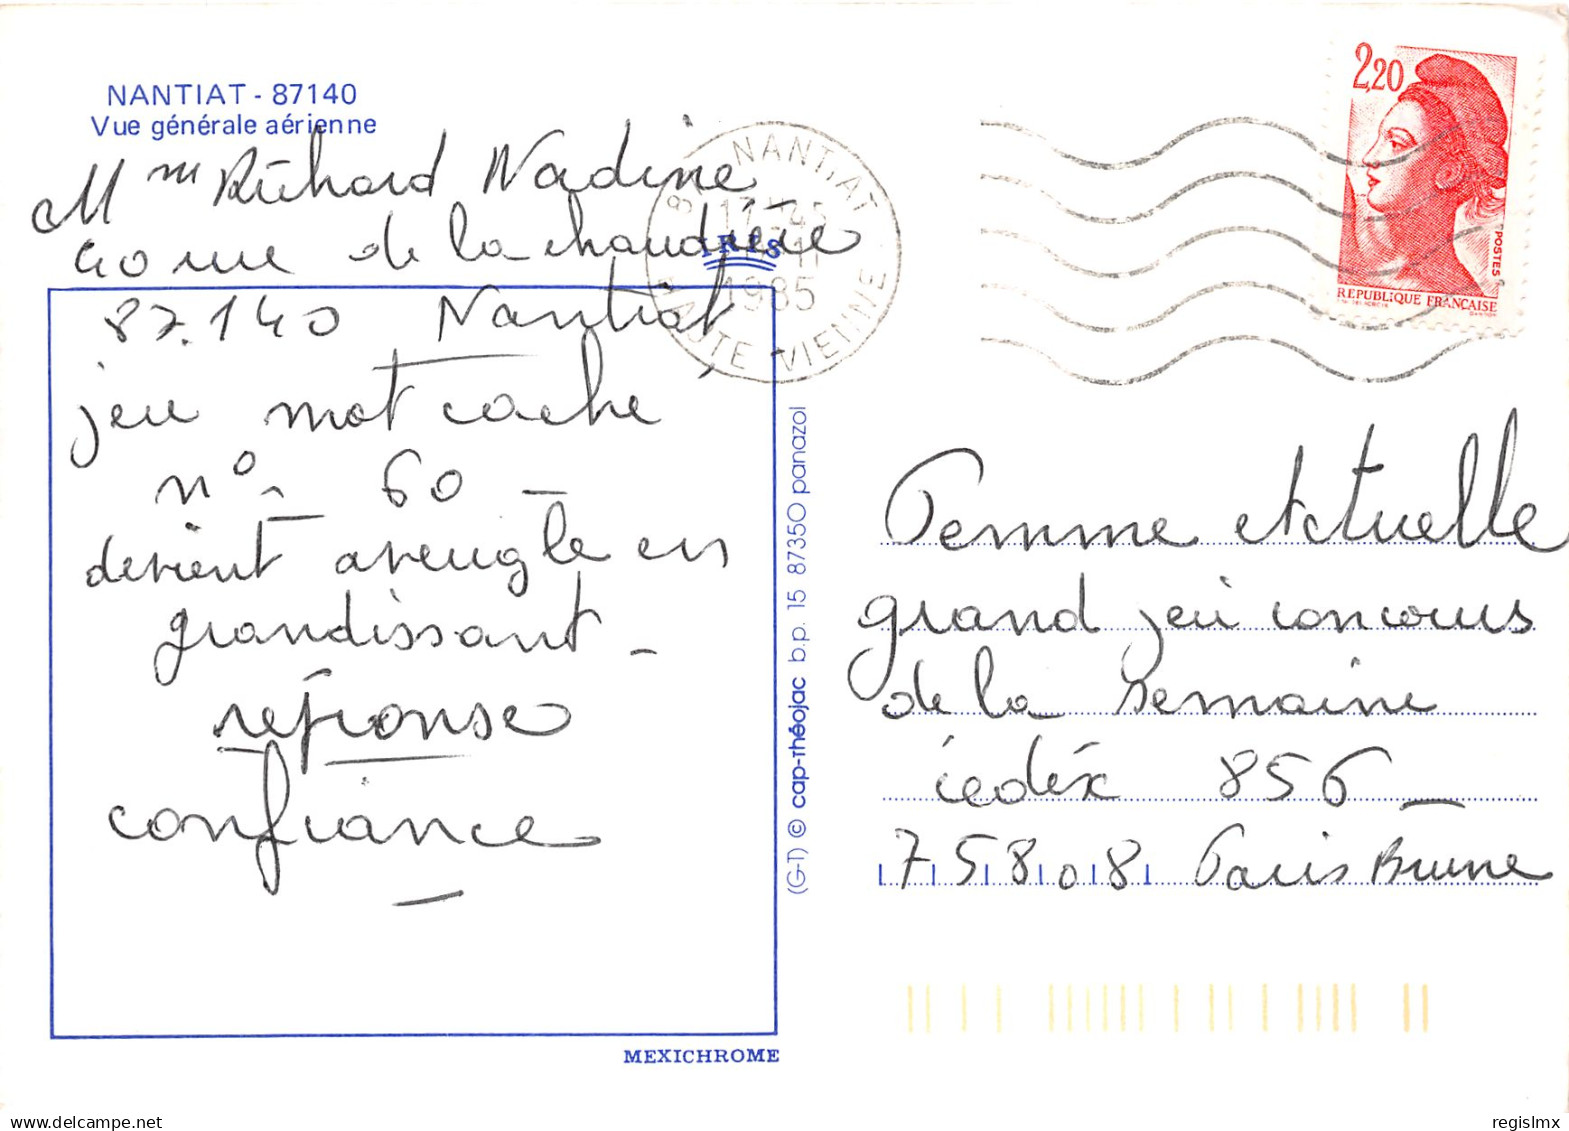 NANTIAT - 87140
Vue générale aérienne
Mme Richard Nadine
40 rue de la chaudière
87.140 Nantiat
jeu mot caché
n° 60 -
devient aveugle en
grandissant -
réponse
confiance
IRIS
NANTIAT
1985
HAUTE VIENNE
2,20
POSTES
REPUBLIQUE FRANÇAISE
Femme Actuelle
grand jeu concours
de la semaine
cédéx 856 -
75808 Paris Brune
(G-T) © cap-théojac b.p. 15 87350 panazol
MEXICHROME
delcampe.net
regislmx